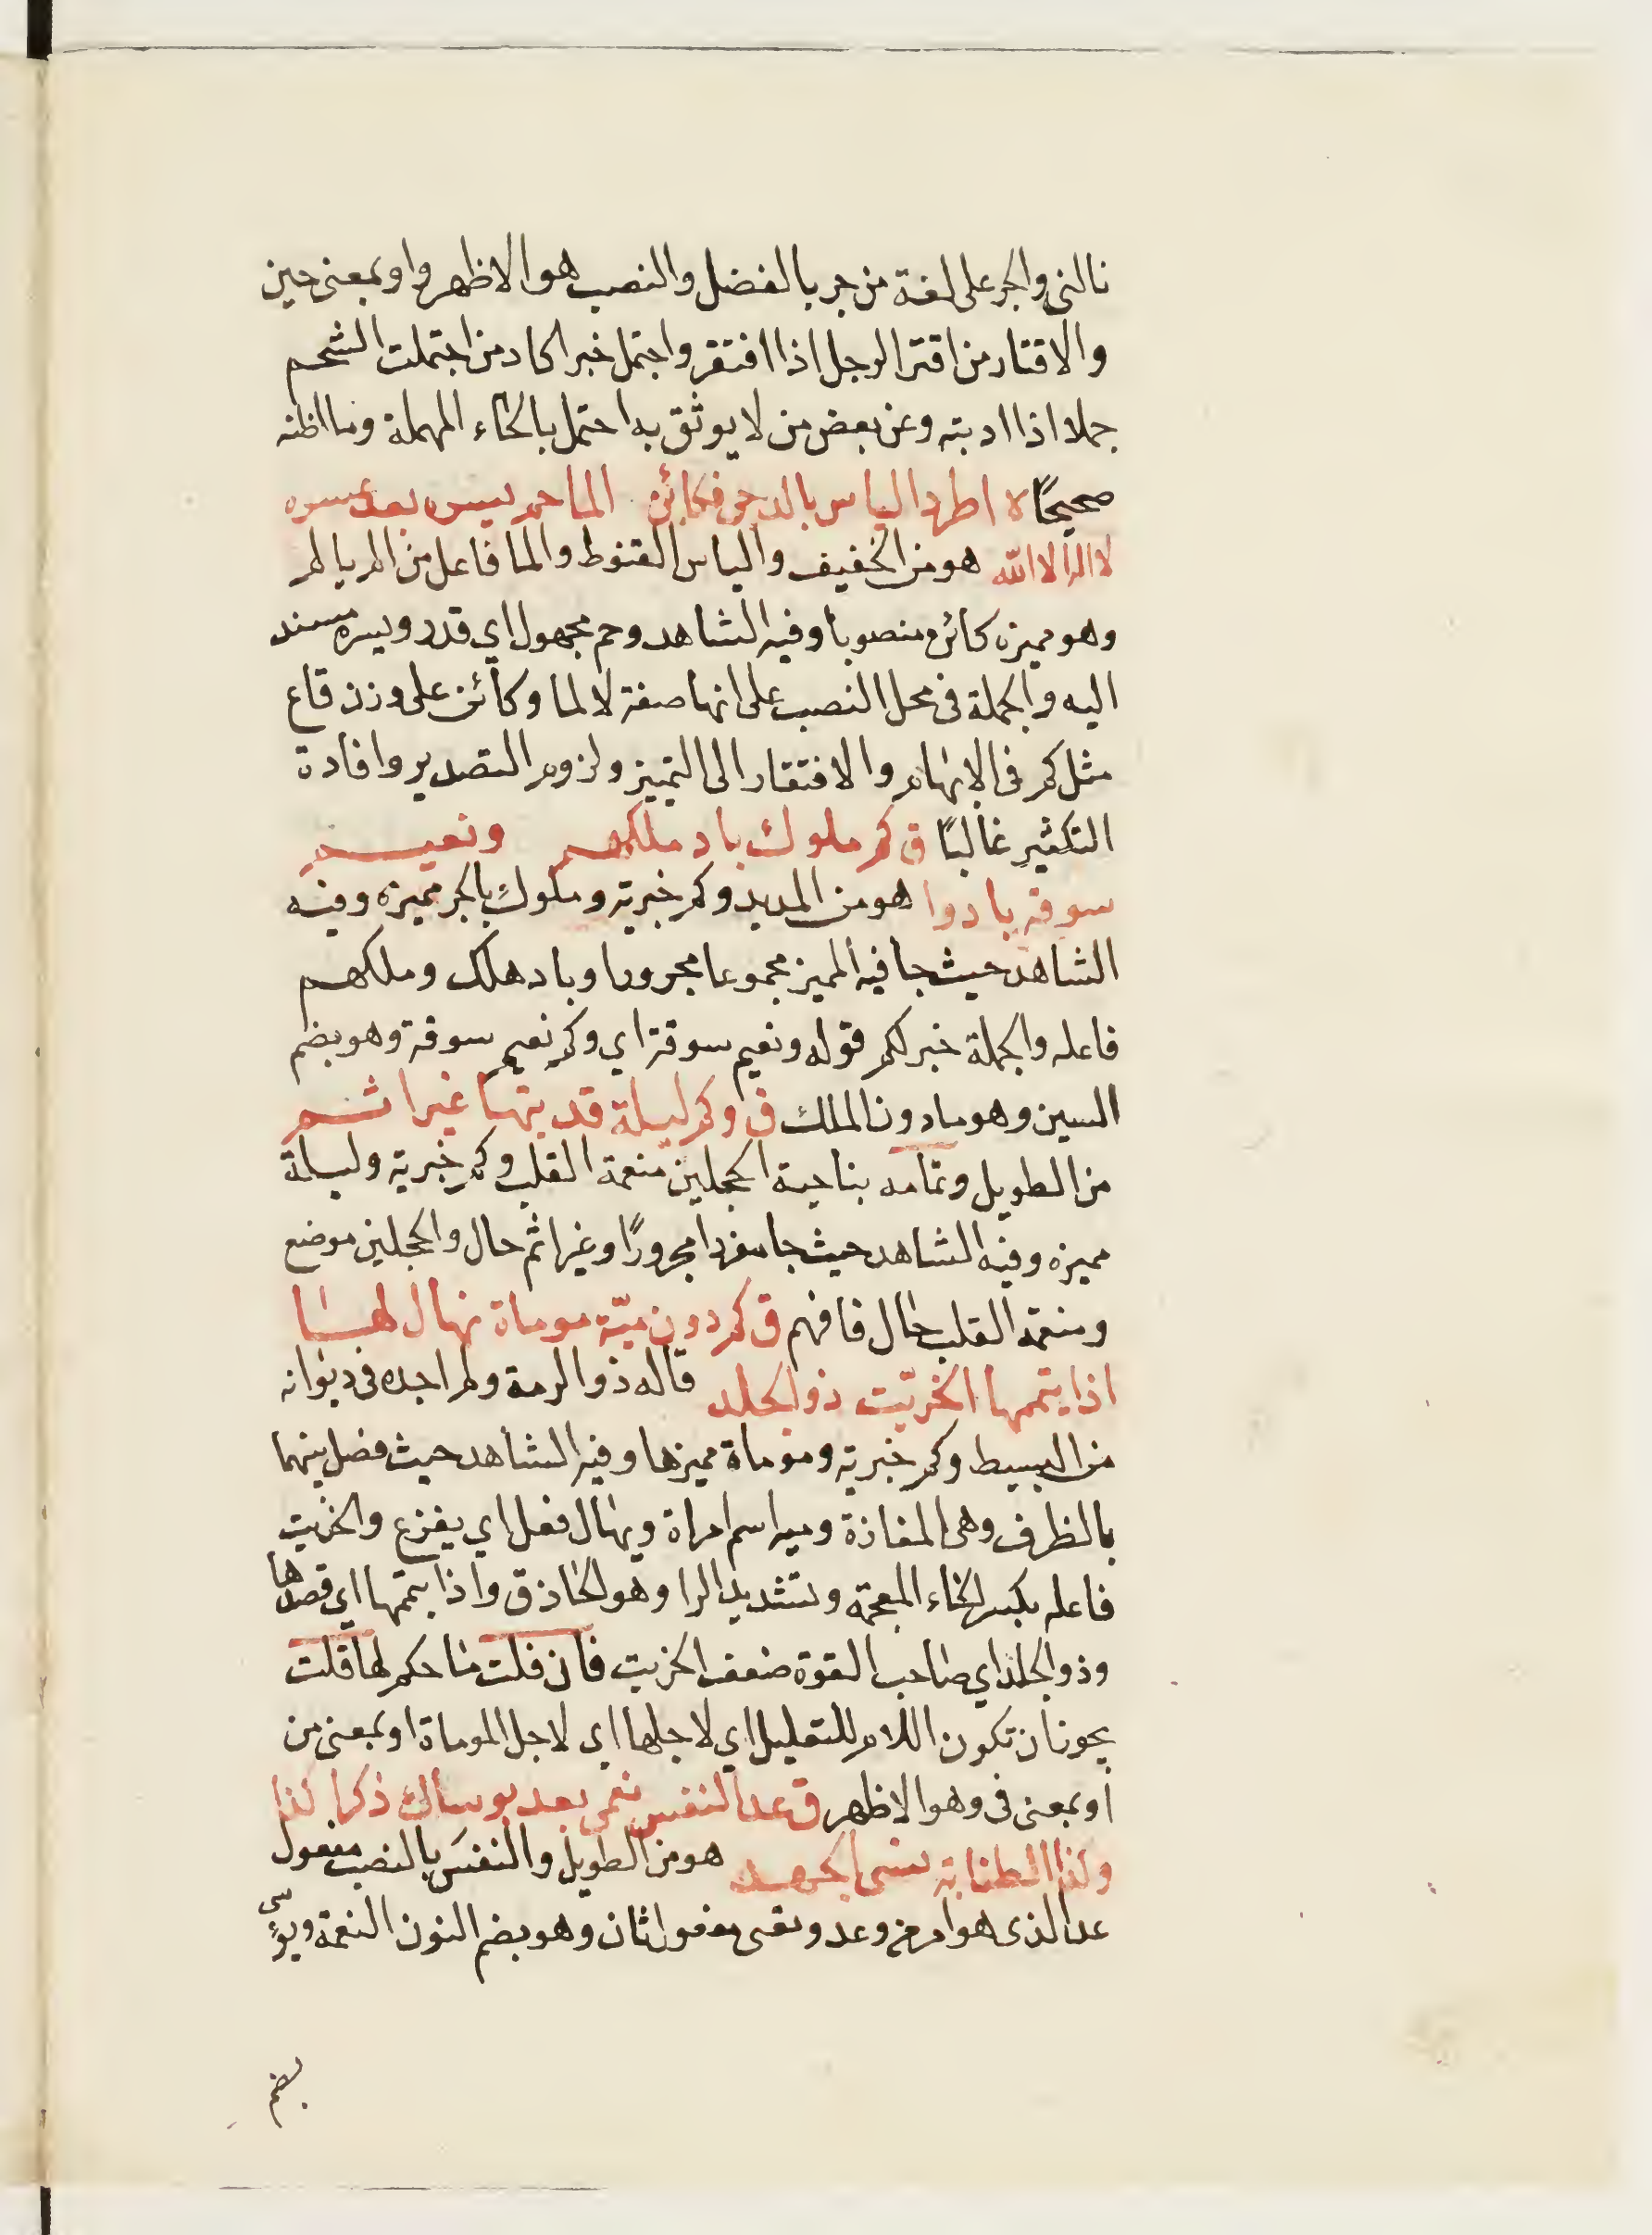 نالني والجر على لغة من جر بالفضل والنصب هو الاظهر واو بمعنى حين
والاقتار من اقتر الرجل اذا افتقر واجتمل خبر اكاد من اجتملت الشحم
جملا اذا ادبته وعن بعض من لا يوثق به احتمل بالحاء المهملة وما اظنه
صحيحًا ه اطرد الياس بالرجى فكائن الما حم يسره بعد عسره
لا اله الا الله هو من الخفيف والياس القنوط والما فاعل من الم يالم
وهو مميزه كائن منصوبا وفيه الشاهد وحم مجهول اي قدر ويسره مسند
اليه والجملة في محل النصب على انها صفة لالما وكائن على وزن قاع
مثل كم في الابهام والافتقار الى التمييز ولزوم التصدير وافادة
التكثير غالبًا ق كم ملوك باد ملكهم ونعيم
سوقة بادوا هو من المديد وكم خبرية وملوك بالجر مميزه وفيه
الشاهد حيث جا فيه المميز مجموعا مجرورا وباد هلك وملكهم
فاعله والجملة خبر لكم قوله ونعيم سوقة اي وكم نعيم سوقة وهو بضم
السين وهو ما دون الملك ق وكم ليلة قد بتها غير اثم
من الطويل وتمامه بناحية الحجلين منعمة القلب وكم خبرية وليلة
مميزه وفيه الشاهد حيث جا مفردا مجرورًا وغير اثم حال والحجلين موضع
ومنعمة القلب حال فافهم ق كم دون ميّة موماة نهال لها
اذا يتممها الخرّيت ذو الجلد قاله ذو الرمة ولم اجده في ديوانه
من البسيط وكم خبرية وموماة مميزها وفيه الشاهد حيث فصل بينهما
بالظرف وهي المفازة ومية اسم امراة ويهال فعل اي يفزع والخريت
فاعله بكسر الخاء المعجمة وتشديد الرا وهو الحاذق واذا يتممها اي قصدها
وذو الجلد اي صاحب القوة ضعف الخريت فان قلت ما حكم لها قلت
يجوز ان تكون اللام للتعليل اي لاجلها اي لاجل الموماة او بمعنى من
او بمعنى في وهو الاظهر ق عد النفس نعمى بعد بوساك ذكرا كذا
وكذا لطفا به نسي الجهد هو من الطويل والنفسَ بالنصب مفعول
عد الذي هو امر من وعد ونعمى مفعول ثان وهو بضم النون النعمة وبؤسى
بضم